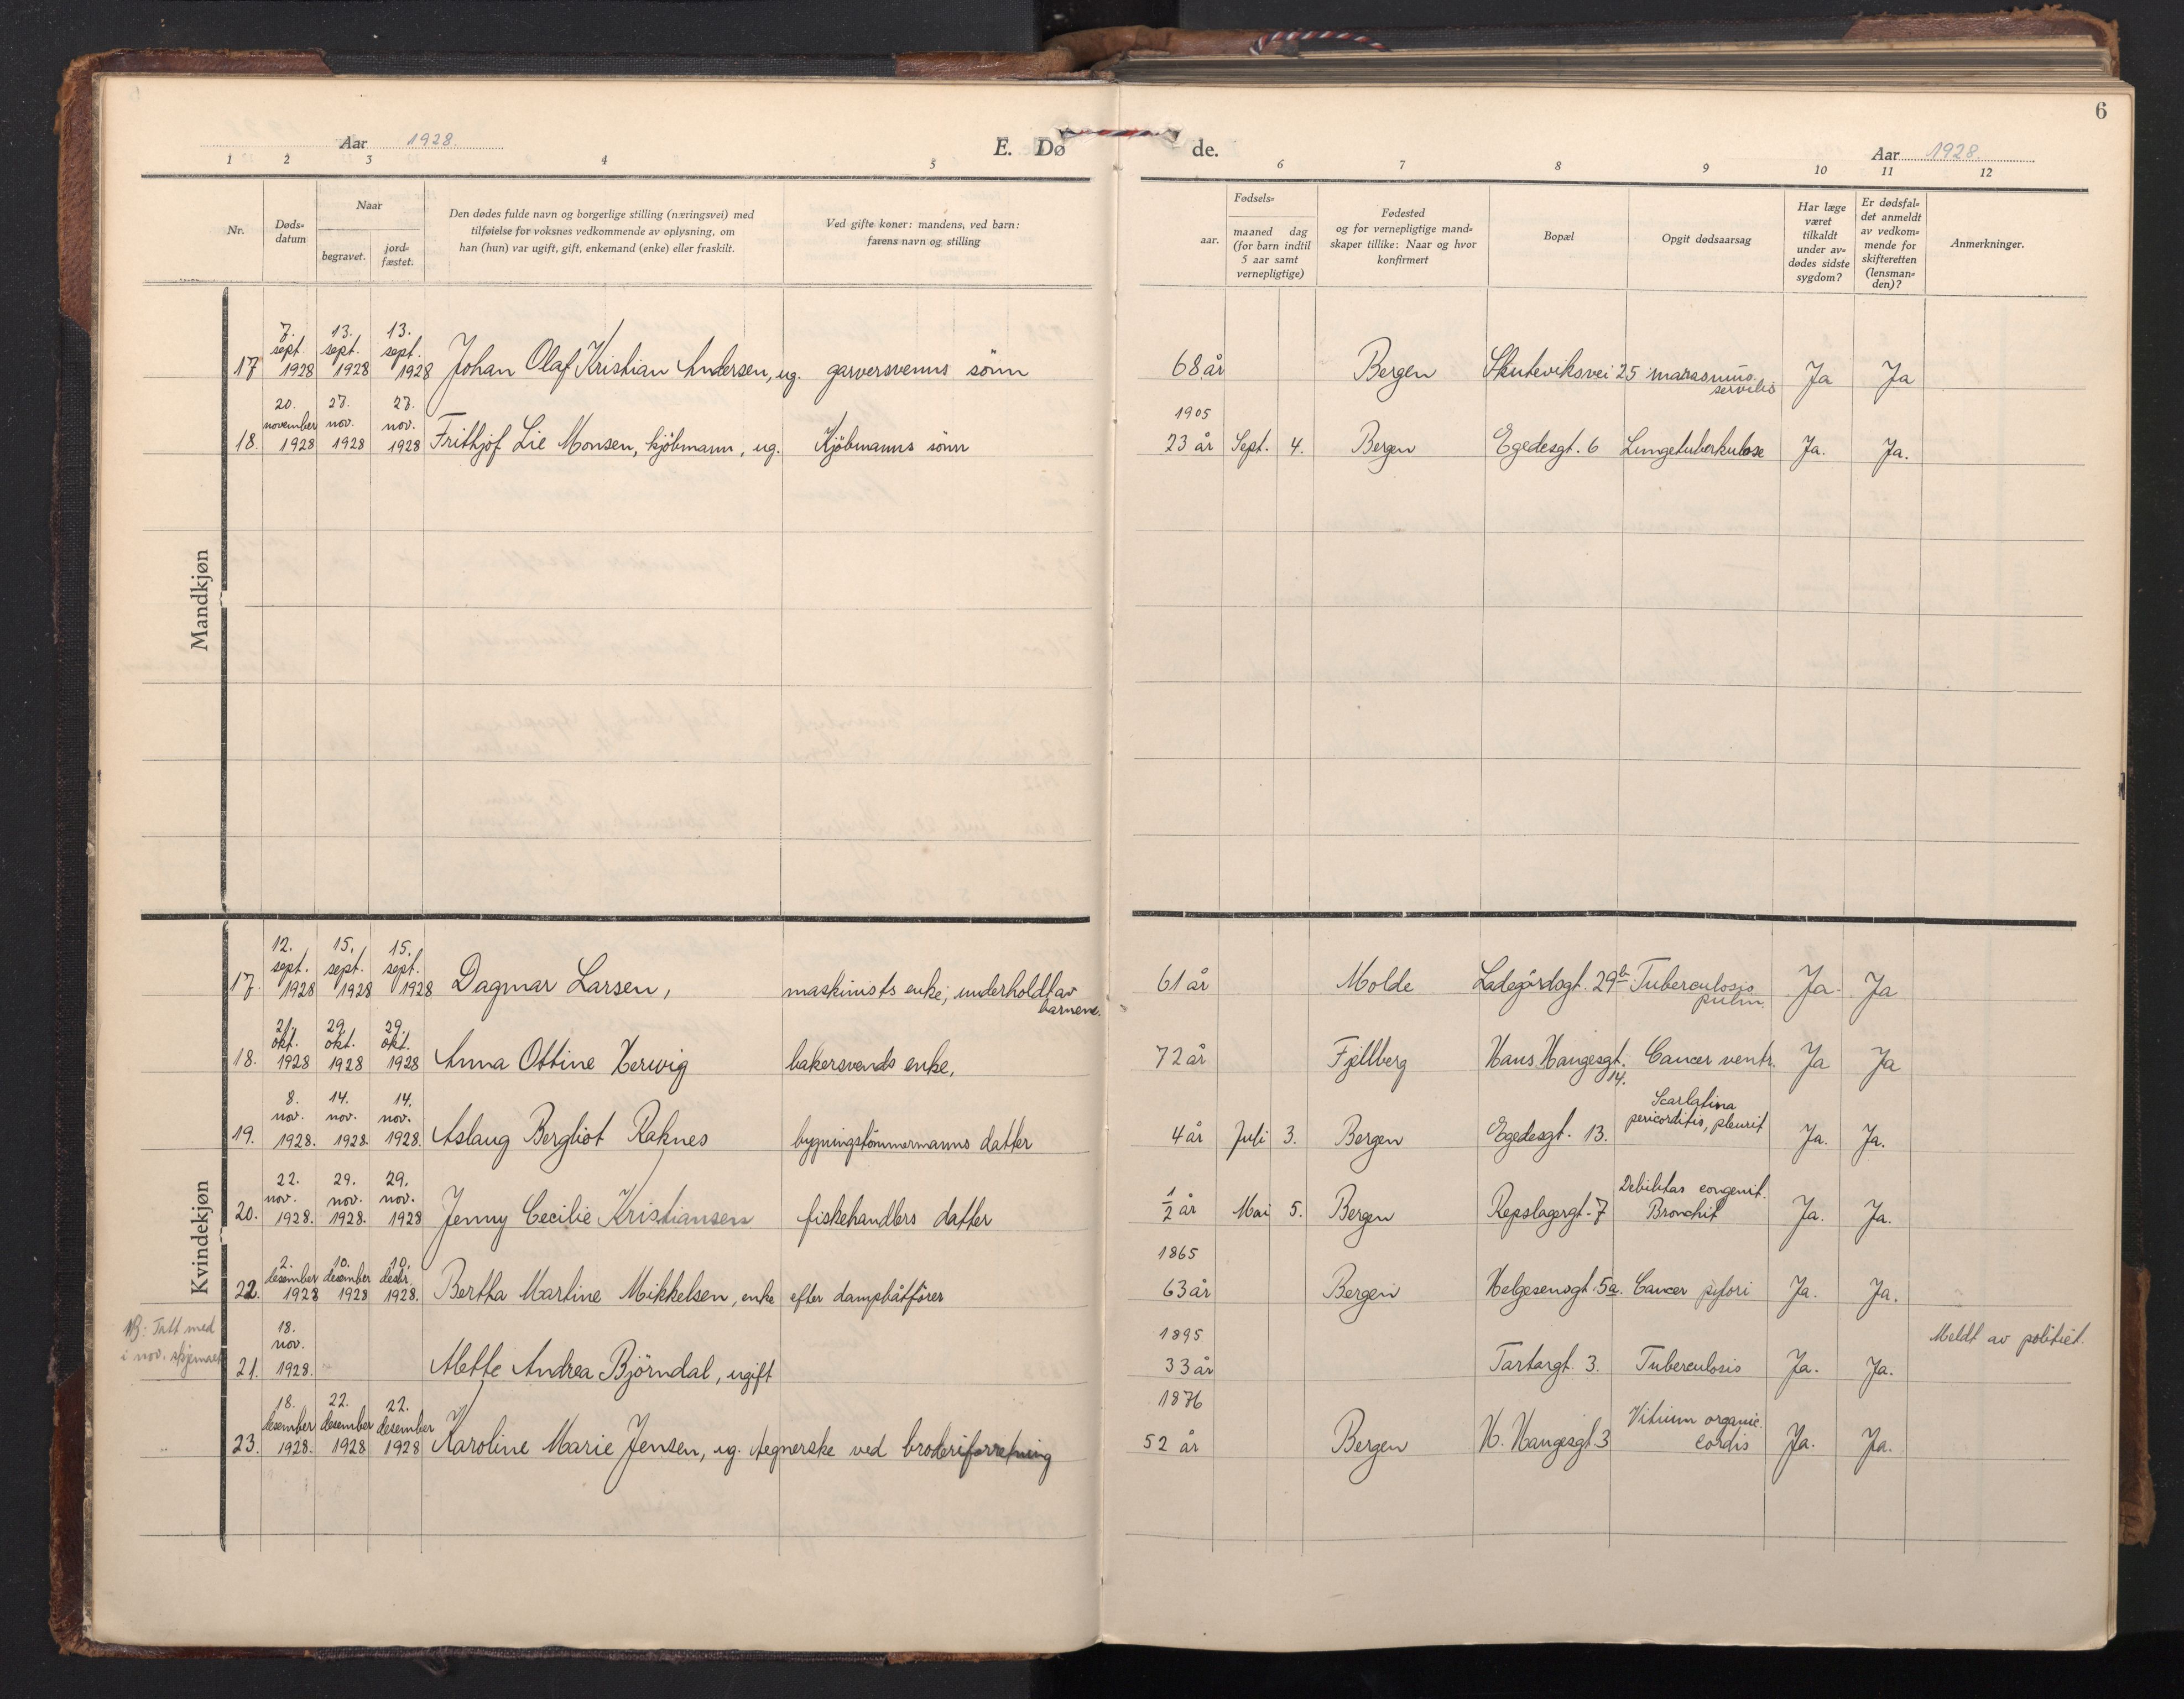 6
Aar 1928.
E. Dø de.
Aar 1928.
1 2 3 4 5 6 7 8 9 10 11 12
Nr.
Døds-
datum
Naar
begravet.
jord-
fæstet.
Den dødes fulde navn og borgerlige stilling (næringsvei) med
tilføielse for voksnes vedkommende av oplysning, om
han (hun) var ugift, gift, enkemand (enke) eller fraskilt.
Ved gifte koner: mandens, ved barn:
farens navn og stilling
Fødsels-
aar.
maaned dag
(for barn indtil
5 aar samt
vernepligtige)
Fødested
og for vernepligtige mand-
skaper tillike: Naar og hvor
konfirmert
Bopæl
Opgit dødsaarsag
Har læge
været
tilkaldt
under av-
dødes sidste
sygdom?
Er dødsfal-
det anmeldt
av vedkom-
mende for
skifteretten
(lensman-
den)?
Anmerkninger.
Mandkjøn
7. 13. 13.
sept. sept. sept.
17 1928 1928 1928 Johan Olaf Kristian Andersen, ug. garversvenns sönn 68 år Bergen Skuteviksvei 25 marasmus Ja Ja
20. 27. 27. 1905
november nov. nov.
18. 1928 1928 1928 Frithjof Lie Monsen, kjöbmann, ug. Kjöbmanns sönn 23 år Sept. 4. Bergen Egedesgt. 6 Lungetuberkulose Ja. Ja.
Kvindekjøn
12. 15. 15.
sept. sept. sept.
17. 1928 1928 1928 Dagmar Larsen, maskinists enke, underholdt av 61 år Molde Ladegårdsgt. 29b Tuberculosis Ja. Ja
barnene. pulm.
21. 29. 29.
okt. okt. okt.
18. 1928 1928 1928 Anna Ottine Herwig bakersvends enke, 72 år Fjellberg Hans Haugesgt. Cancer ventr. Ja Ja
14.
8. 14. 14. Scarlatina
nov. nov. nov. pericorditis, pleurit
19. 1928. 1928. 1928. Aslaug Bergliot Raknes bygningstömmermanns datter 4 år Juli 3. Bergen Egedesgt. 13. Ja. Ja.
22. 29. 29. Debilitas congenit.
nov. nov. nov.
20. 1928. 1928. 1928 Jenny Cecilie Kristiansen fiskehandlers datter 1/2 år Mai 5. Bergen Repslagergt. 7 Bronchit Ja. Ja.
2. 10. 10. 1865
desember desember desbr.
22. 1928 1928 1928. Bertha Martine Mikkelsen, enke efter dampbåtförer 63 år Bergen Helgesensgt. 5a. Cancer pylori Ja. Ja.
NB: Tatt med
i nov. skjemaet
18. 1895 Meldt av politiet.
nov.
21. 1928. Mette Andrea Björndal, ugift 33 år Tartargt. 3. Tuberculosis Ja. Ja.
18. 22. 22. 1876
desember desember desember Vitium organic.
23. 1928. 1928 1928 Karoline Marie Jensen, ug. tegnerske ved broderiforretning 52 år Bergen H. Haugesgt. 3 cordis Ja. Ja.